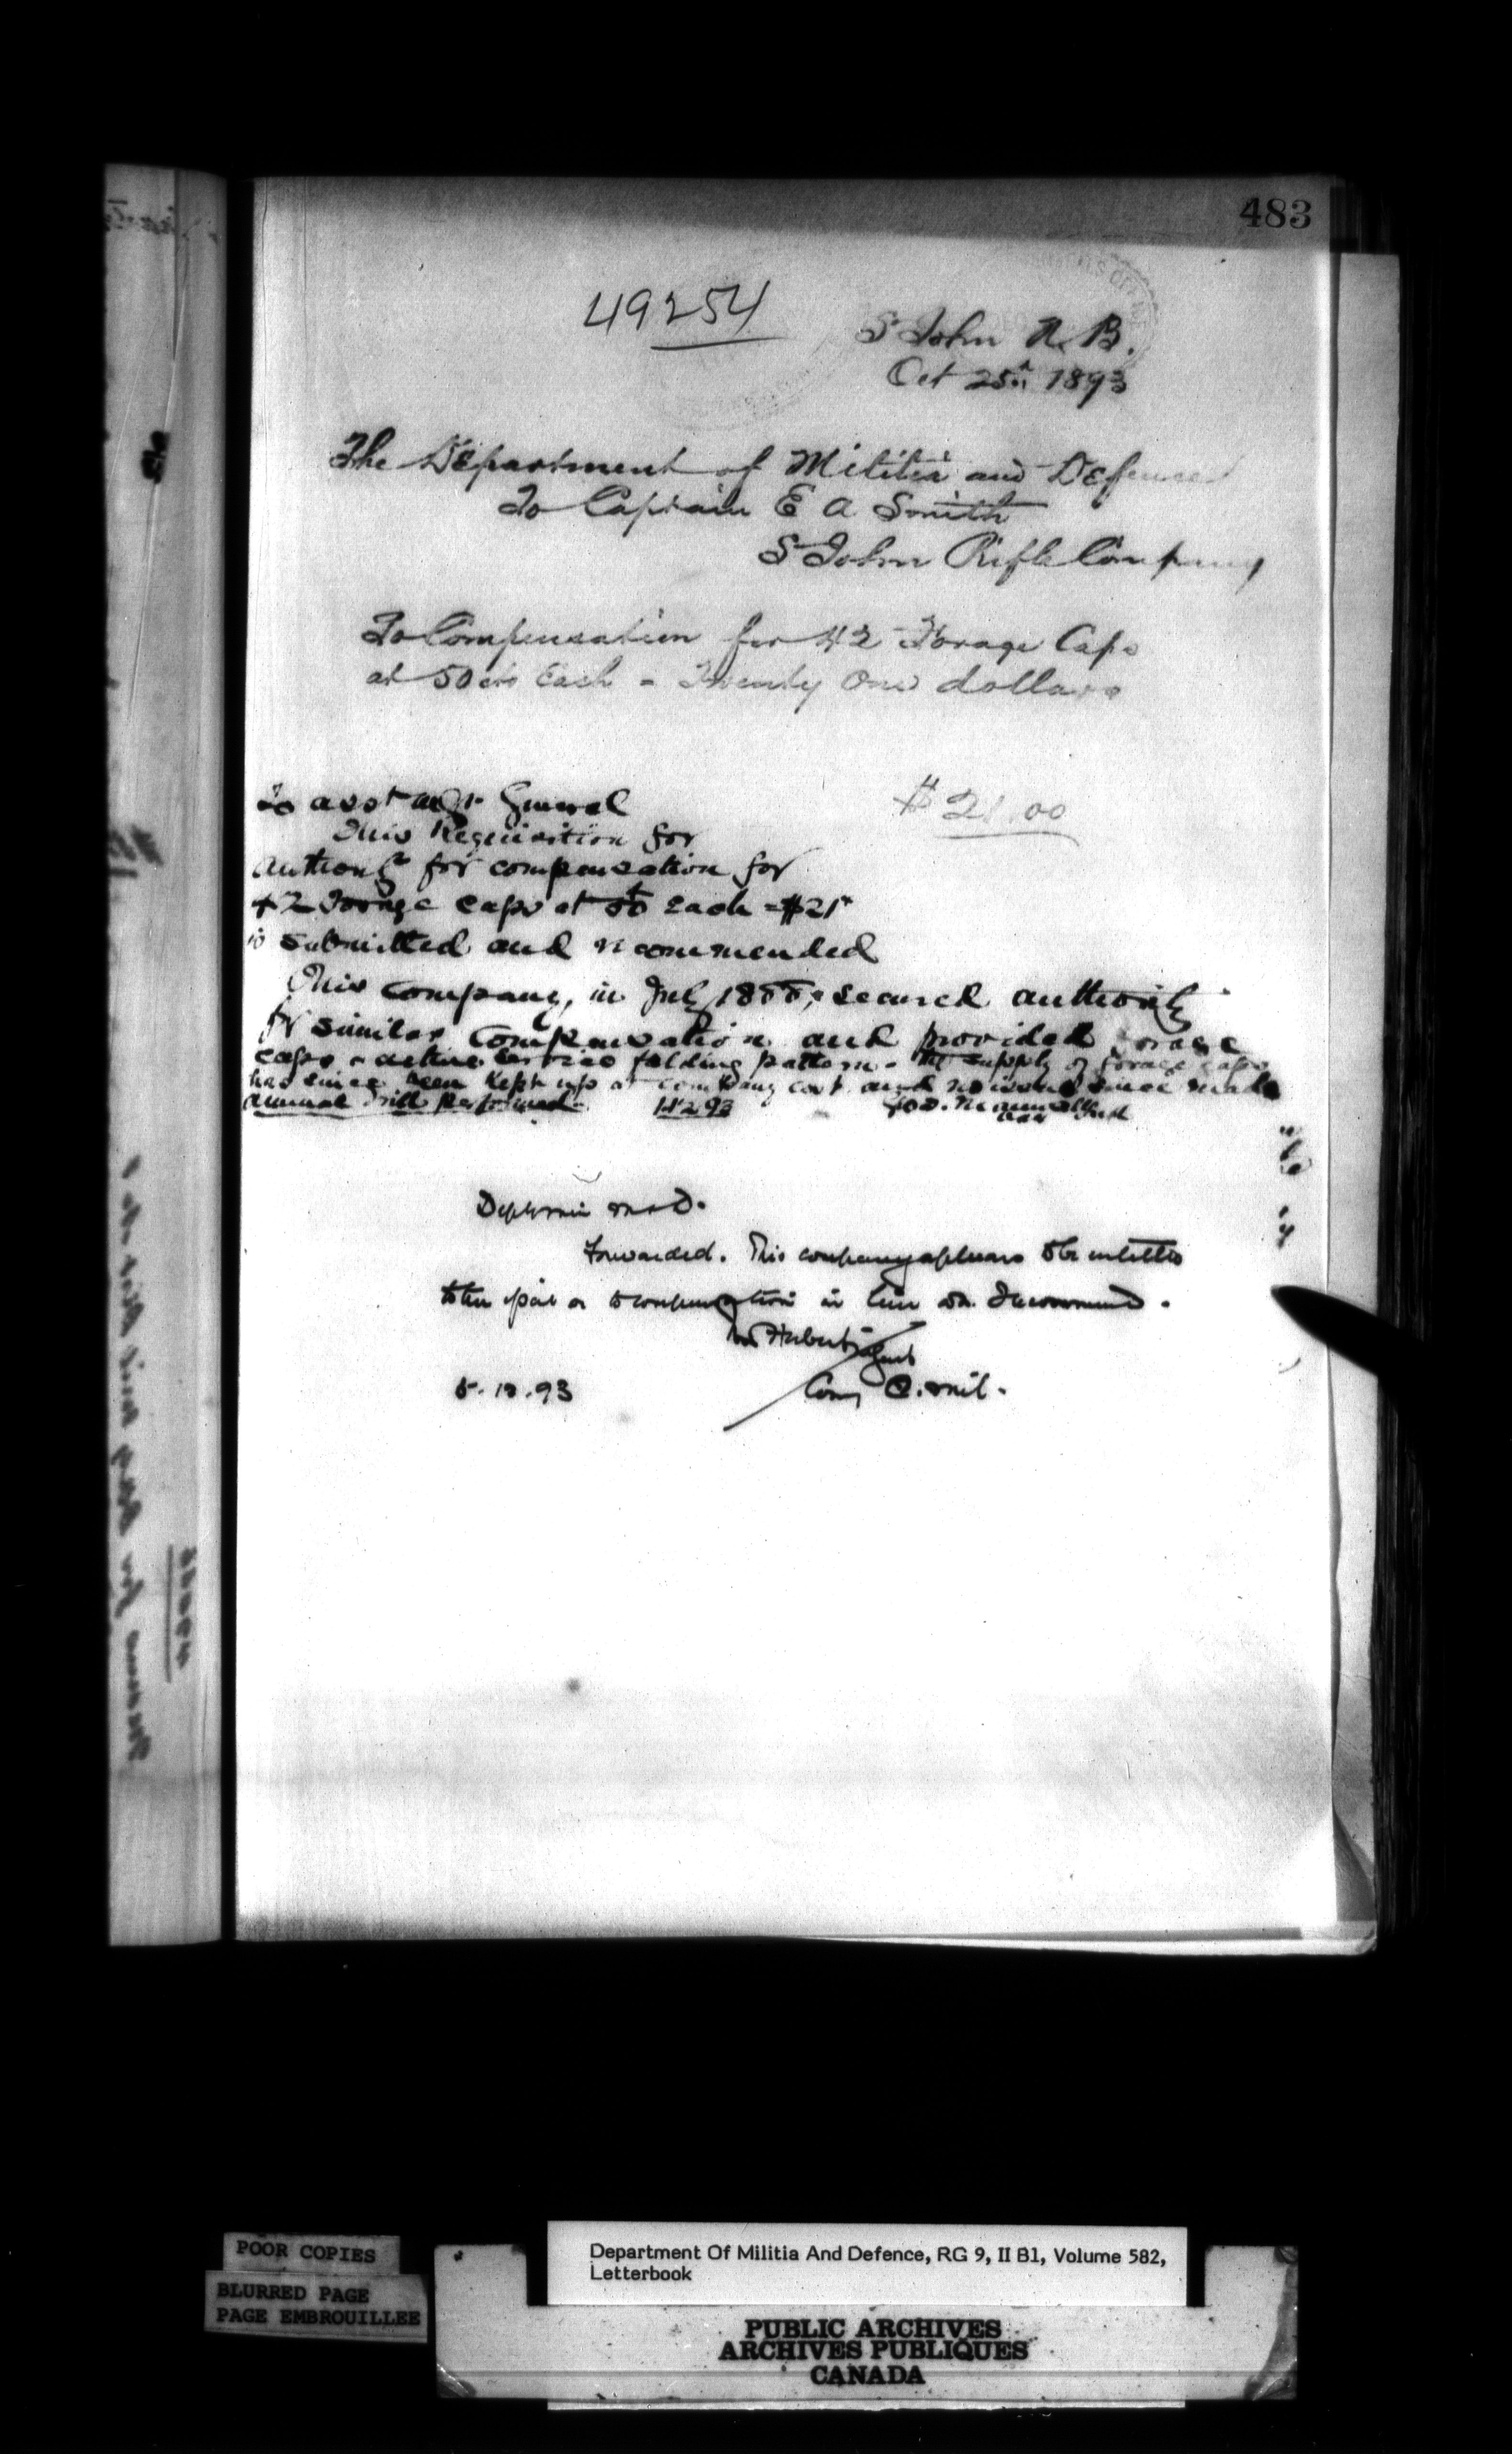 483
49254
St John N. B.
Oct 25th 1893
The Department of Militia and Defence
To Captain E A Smith
St John Rifle Company
To Compensation for 42 Forage Caps
at 50 cts Each = Twenty One dollars
$21.00
To Asst Adjt General
This Requisition for
authority for compensation for
42 Forage caps at each = $21
is submitted and recommended
This company, in 188 secured authority
for similar compensation and provided forage
caps - active service folding pattern - the supply of forage caps
has since been kept up at company cost and no issue since made
annual drill performed.
Forwarded. This company appears to be entitled
to the or compensation in lieu
Herbert
5.12.93
Comg C. Mil.
POOR COPIES
BLURRED PAGE
PAGE EMBROUILLEE
Department Of Militia And Defence, RG 9, II B1, Volume 582,
Letterbook
PUBLIC ARCHIVES
ARCHIVES PUBLIQUES
CANADA